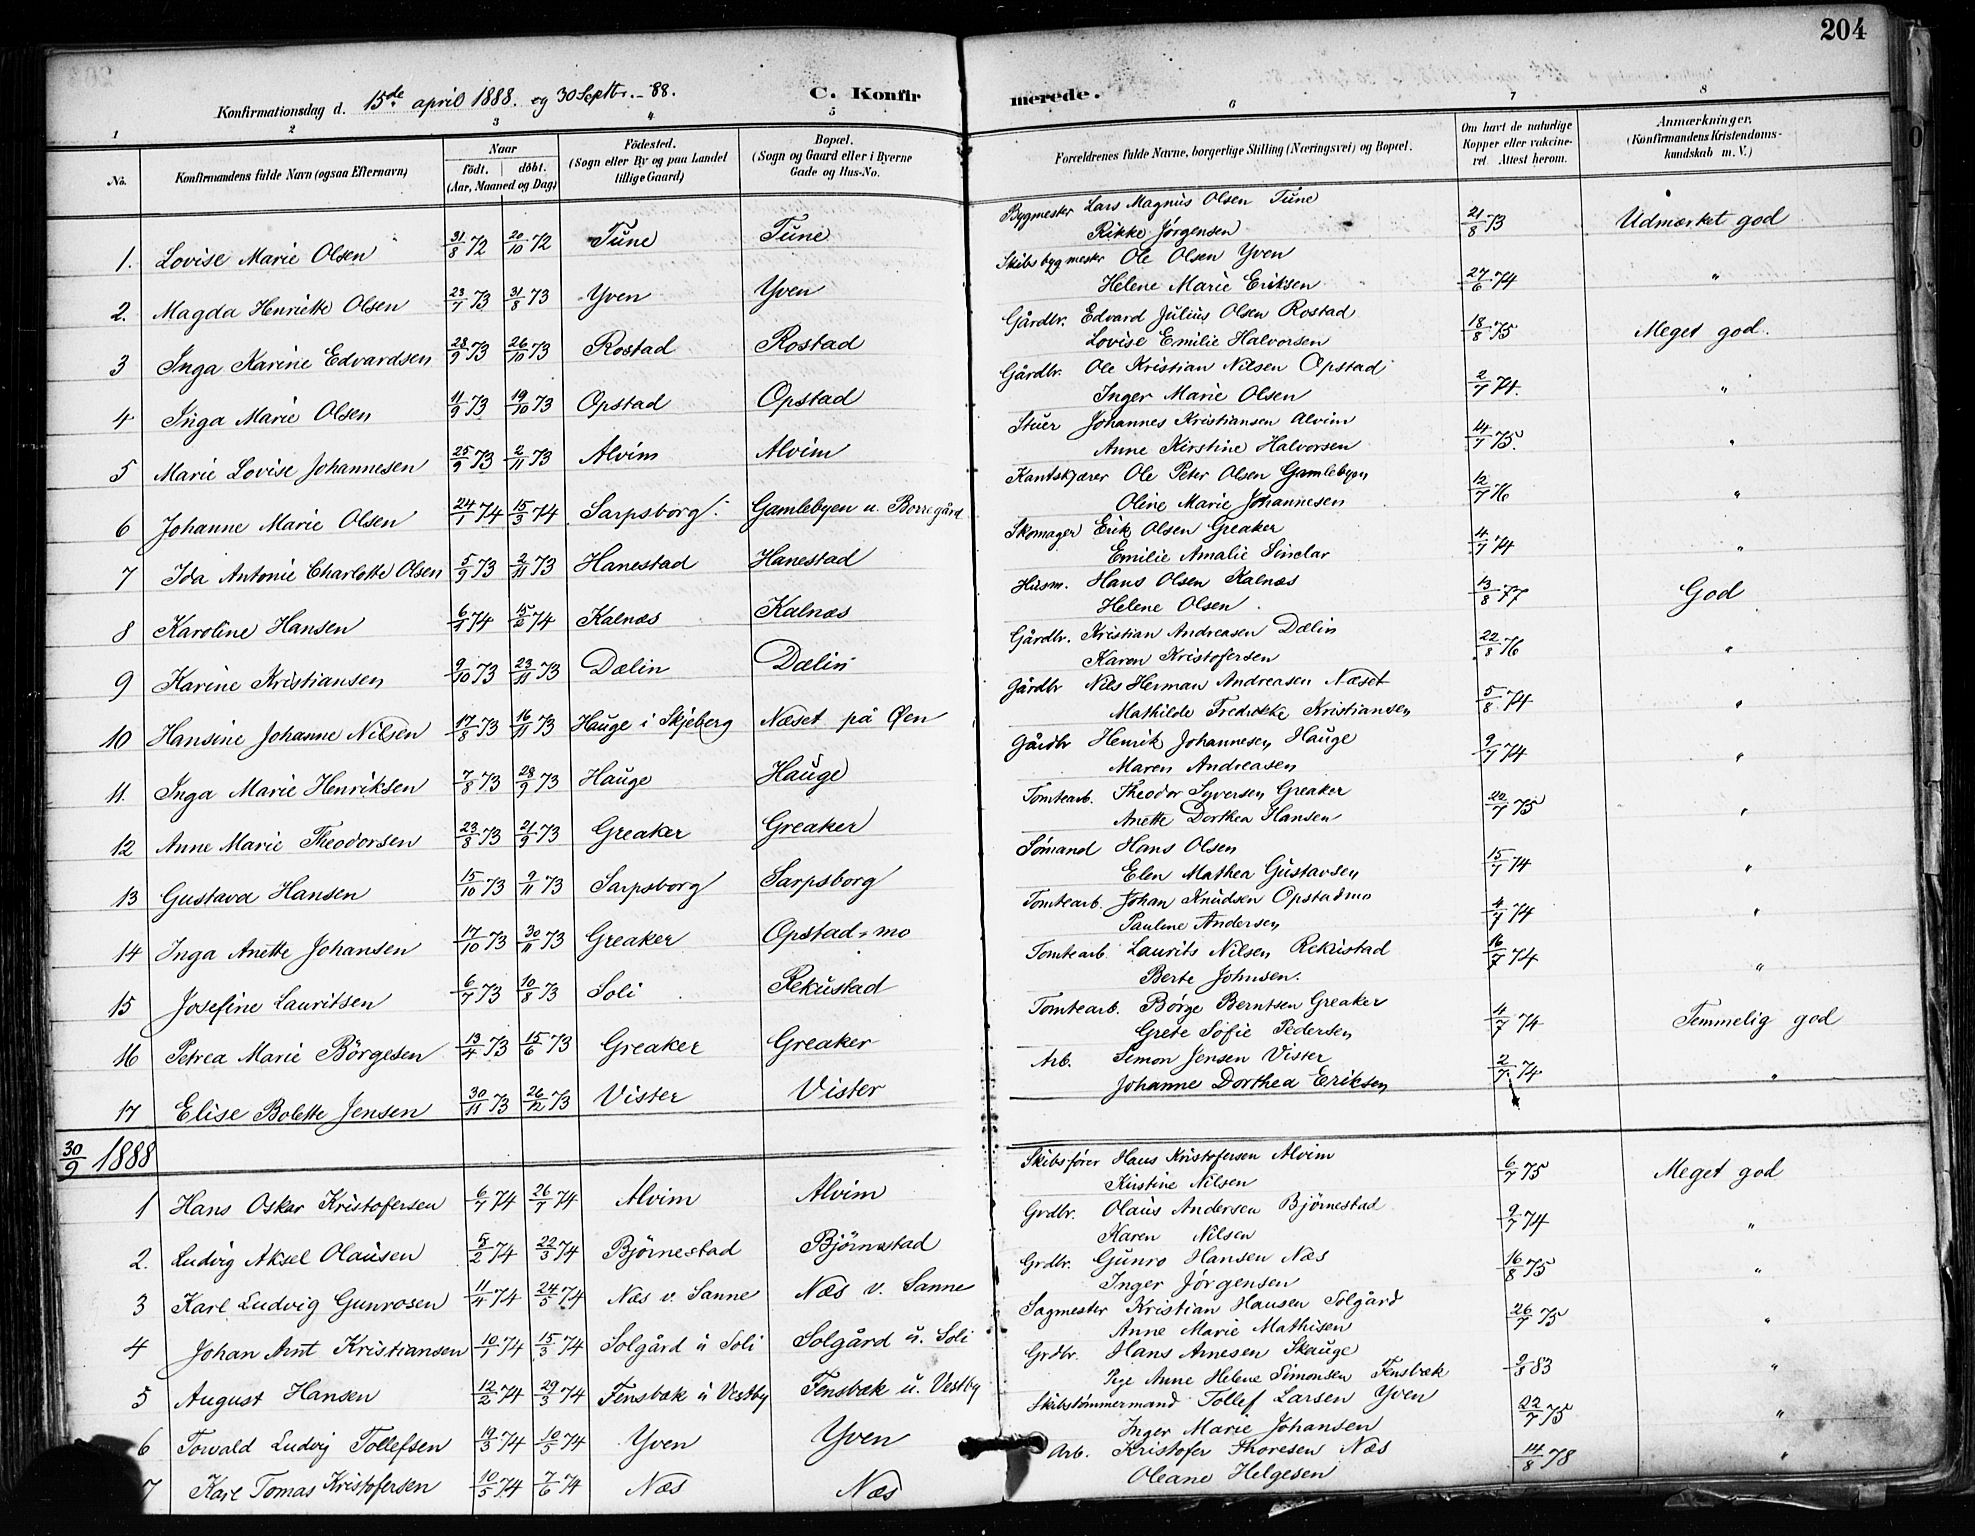 204
Konfirmationsdag d. 15de april 1888. og 30 Septbr. - 88. C. Konfirmerede.
1 2 3 4 5 6 7 8
No. Konfirmandens fulde Navn (ogsaa Efternavn) Naar født. døbt. (Aar, Maaned og Dag) Fødested. (Sogn eller By og paa Landet tillige Gaard) Bopæl. (Sogn og Gaard eller i Byerne Gade og Hus-No. Forældrenes fulde Navne, borgerlige Stilling (Næringsvei) og Bopæl. Om havt de naturlige Kopper eller vakcineret. Attest herom. Anmærkninger, (Konfirmandens Kristendomskundskab m. V.)
1. Lovise Marie Olsen 31/8 72 20/10 72 Tune Tune Bygmester Lars Magnus Olsen Tune 21/8 73 Udmærket god
Rikke Jørgensen
2. Magda Henriette Olsen 23/7 73 31/8 73 Yven Yven Skibsbygmester Ole Olsen Yven 27/6 74 "
Helene Marie Eriksen
3 Inga Karine Edvardsen 28/9 73 26/10 73 Rostad Rostad Gårdbr. Edvard Julius Olsen Rostad 18/8 75 Meget god.
Lovise Emilie Halvorsen
4 Inga Marie Olsen 11/9 73 19/10 73 Opstad Opstad Gårdbr. Ole Kristian Nilsen Opstad 2/7 74. "
Inger Marie Olsen
5 Marie Lovise Johannesen 25/9 73 2/11 73 Alvim Alvim Stuer Johannes Kristiansen Alvim 14/7 75. "
Anne Kirstine Halvorsen
6 Johanne Marie Olsen 24/1 74 15/3 74 Sarpsborg. Gamlebyen u. Borregård Kantskjærer Ole Peter Olsen Gamlebyen 12/7 76 "
Oline Marie Johannesen
7 Ida Antonie Charlotte Olsen 5/9 73 2/11 73 Hanestad Hanestad Skomager Erik Olsen Greaker 4/7 74 "
Emilie Amalie Sinclar
8 Karoline Hansen 6/1 74 15/2 74 Kalnæs Kalnæs Husm. Hans Olsen Kalnæs 13/8 77 God
Helene Olsen.
9 Karine Kristiansen 9/10 73 23/11 73 Dælin Dælin Gårdbr. Kristian Andreasen Dælin 22/8 76 "
Karen Kristofersen
10 Hansine Johanne Nilsen 17/8 73 16/11 73 Hauge i Skjeberg Næset på Øen Gårdbr Nils Herman Andreasen Næset 5/8 74 "
Mathilde Fredrikke Kristiansen
11. Inga Marie Henriksen 7/8 73 28/9 73 Hauge Hauge Gårdbr Henrik Johannesen Hauge 9/7 74 "
Maren Andreasen
12 Anne Marie Theodorsen 23/8 73 21/9 73 Greaker Greaker Tomtearb. Theodor Syversen Greaker 22/7 75 "
Anette Dorthea Hansen
13 Gustava Hansen 15/10 73 9/11 73 Sarpsborg Sarpsborg Sømand Hans Olsen 15/7 74 "
Elen Mathea Gustavsen
14 Inga Anette Johansen 17/10 73 30/11 73 Greaker Opstad-mo Tomtearb. Johan Knudsen Opstadmo 4/7 74 "
Pauline Andersen
15 Josefine Lauritsen 6/7 73 10/8 73 Soli Rekustad Tomtearb. Laurits Nilsen Rekustad 16/7 74 "
Berte Johnsen.
16 Petrea Marie Börgesen 13/4 73 15/6 73 Greaker Greaker Tomtearb. Børge Berntsen Greaker 4/7 74 Temmelig god
Grete Sofie Pedersen
17 Elise Bolette Jensen 30/11 73 26/12 73 Vister Vister Arb. Simon Jensen Vister 2/7 74 "
Johanne Dorthea Eriksen
30/9 1888
1 Hans Oskar Kristofersen 6/7 74 26/7 74 Alvim Alvim Skibsfører Hans Kristofersen Alvim 6/7 75 Meget god
Kirstine Nilsen
2. Ludvig Aksel Olausen 5/2 74 22/3 74 Björnestad Björnstad Grdbr. Olaus Andersen Bjørnestad 9/7 74 "
Karen Nilsen
3 Karl Ludvig Gunrosen 11/4 74 24/5 74 Næs v. Sanne Næs v. Sanne Grdbr. Gunro Hansen Næs 16/8 75 "
Inger Jørgensen
4 Johan Arnt Kristiansen 10/1 74 15/3 74 Solgård u Soli Solgård u. Soli Sagmester Kristian Hansen Solgård 26/7 75 "
Anne Marie Mathisen
5 August Hansen 12/2 74 29/3 74 Fensbæk u Vestby Fensbæk u. Vestby Grdbr. Hans Arnesen Skauge 9/8 83 "
Pige Anne Helene Simonsen Fensbæk
6 Torvald Ludvig Tollefsen 19/3 74 10/5 74 Yven Yven Skibstømmermand Tollef Larsen Yven 22/7 75 "
Inger Marie Johansen
7 Karl Tomas Kristofersen 10/5 74 7/6 74 Næs Næs Arb. Kristofer Thoresen Næs 14/8 78 "
Oleane Helgesen